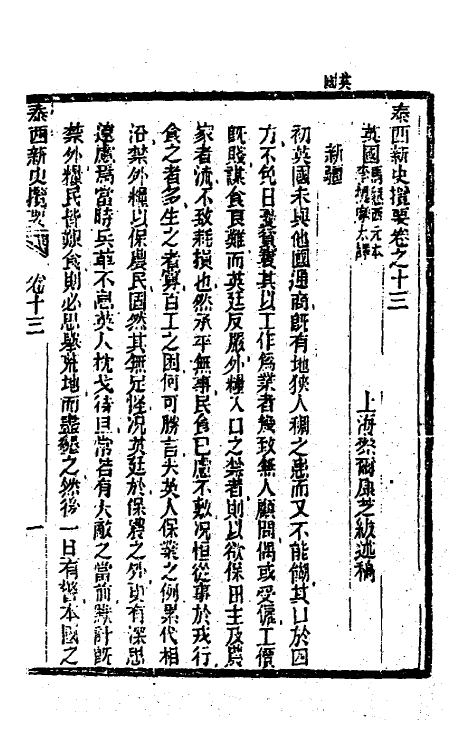 英國
泰西新史攬要卷之十三
英國 馬懇西元本 李提摩太譯 上海蔡爾康芝紱述稿
新疆
初英國未與他國通商旣有地狹人稠之患而又不能餬其口於四
方不免日憂貧窶其以工作爲業者幾致無人顧問偶或受傭工價
旣賤謀食良難而英廷反嚴外糧入口之禁者則以欲保田主及農
家者流不致耗損也然承平無事民食已慮不敷况恒從事於戎行
食之者多生之者寡百工之困何可勝言夫英人保業之例累代相
沿禁外糧以保農民固然其無足怪况英廷於保農之外更有深思
遠慮焉當時兵革不息英人枕戈待旦常若有大敵之當前默計旣
禁外糧民皆艱食則必思墾荒地而盡闢之然後一日有警本國之
泰西新史攬要 卷十三 一